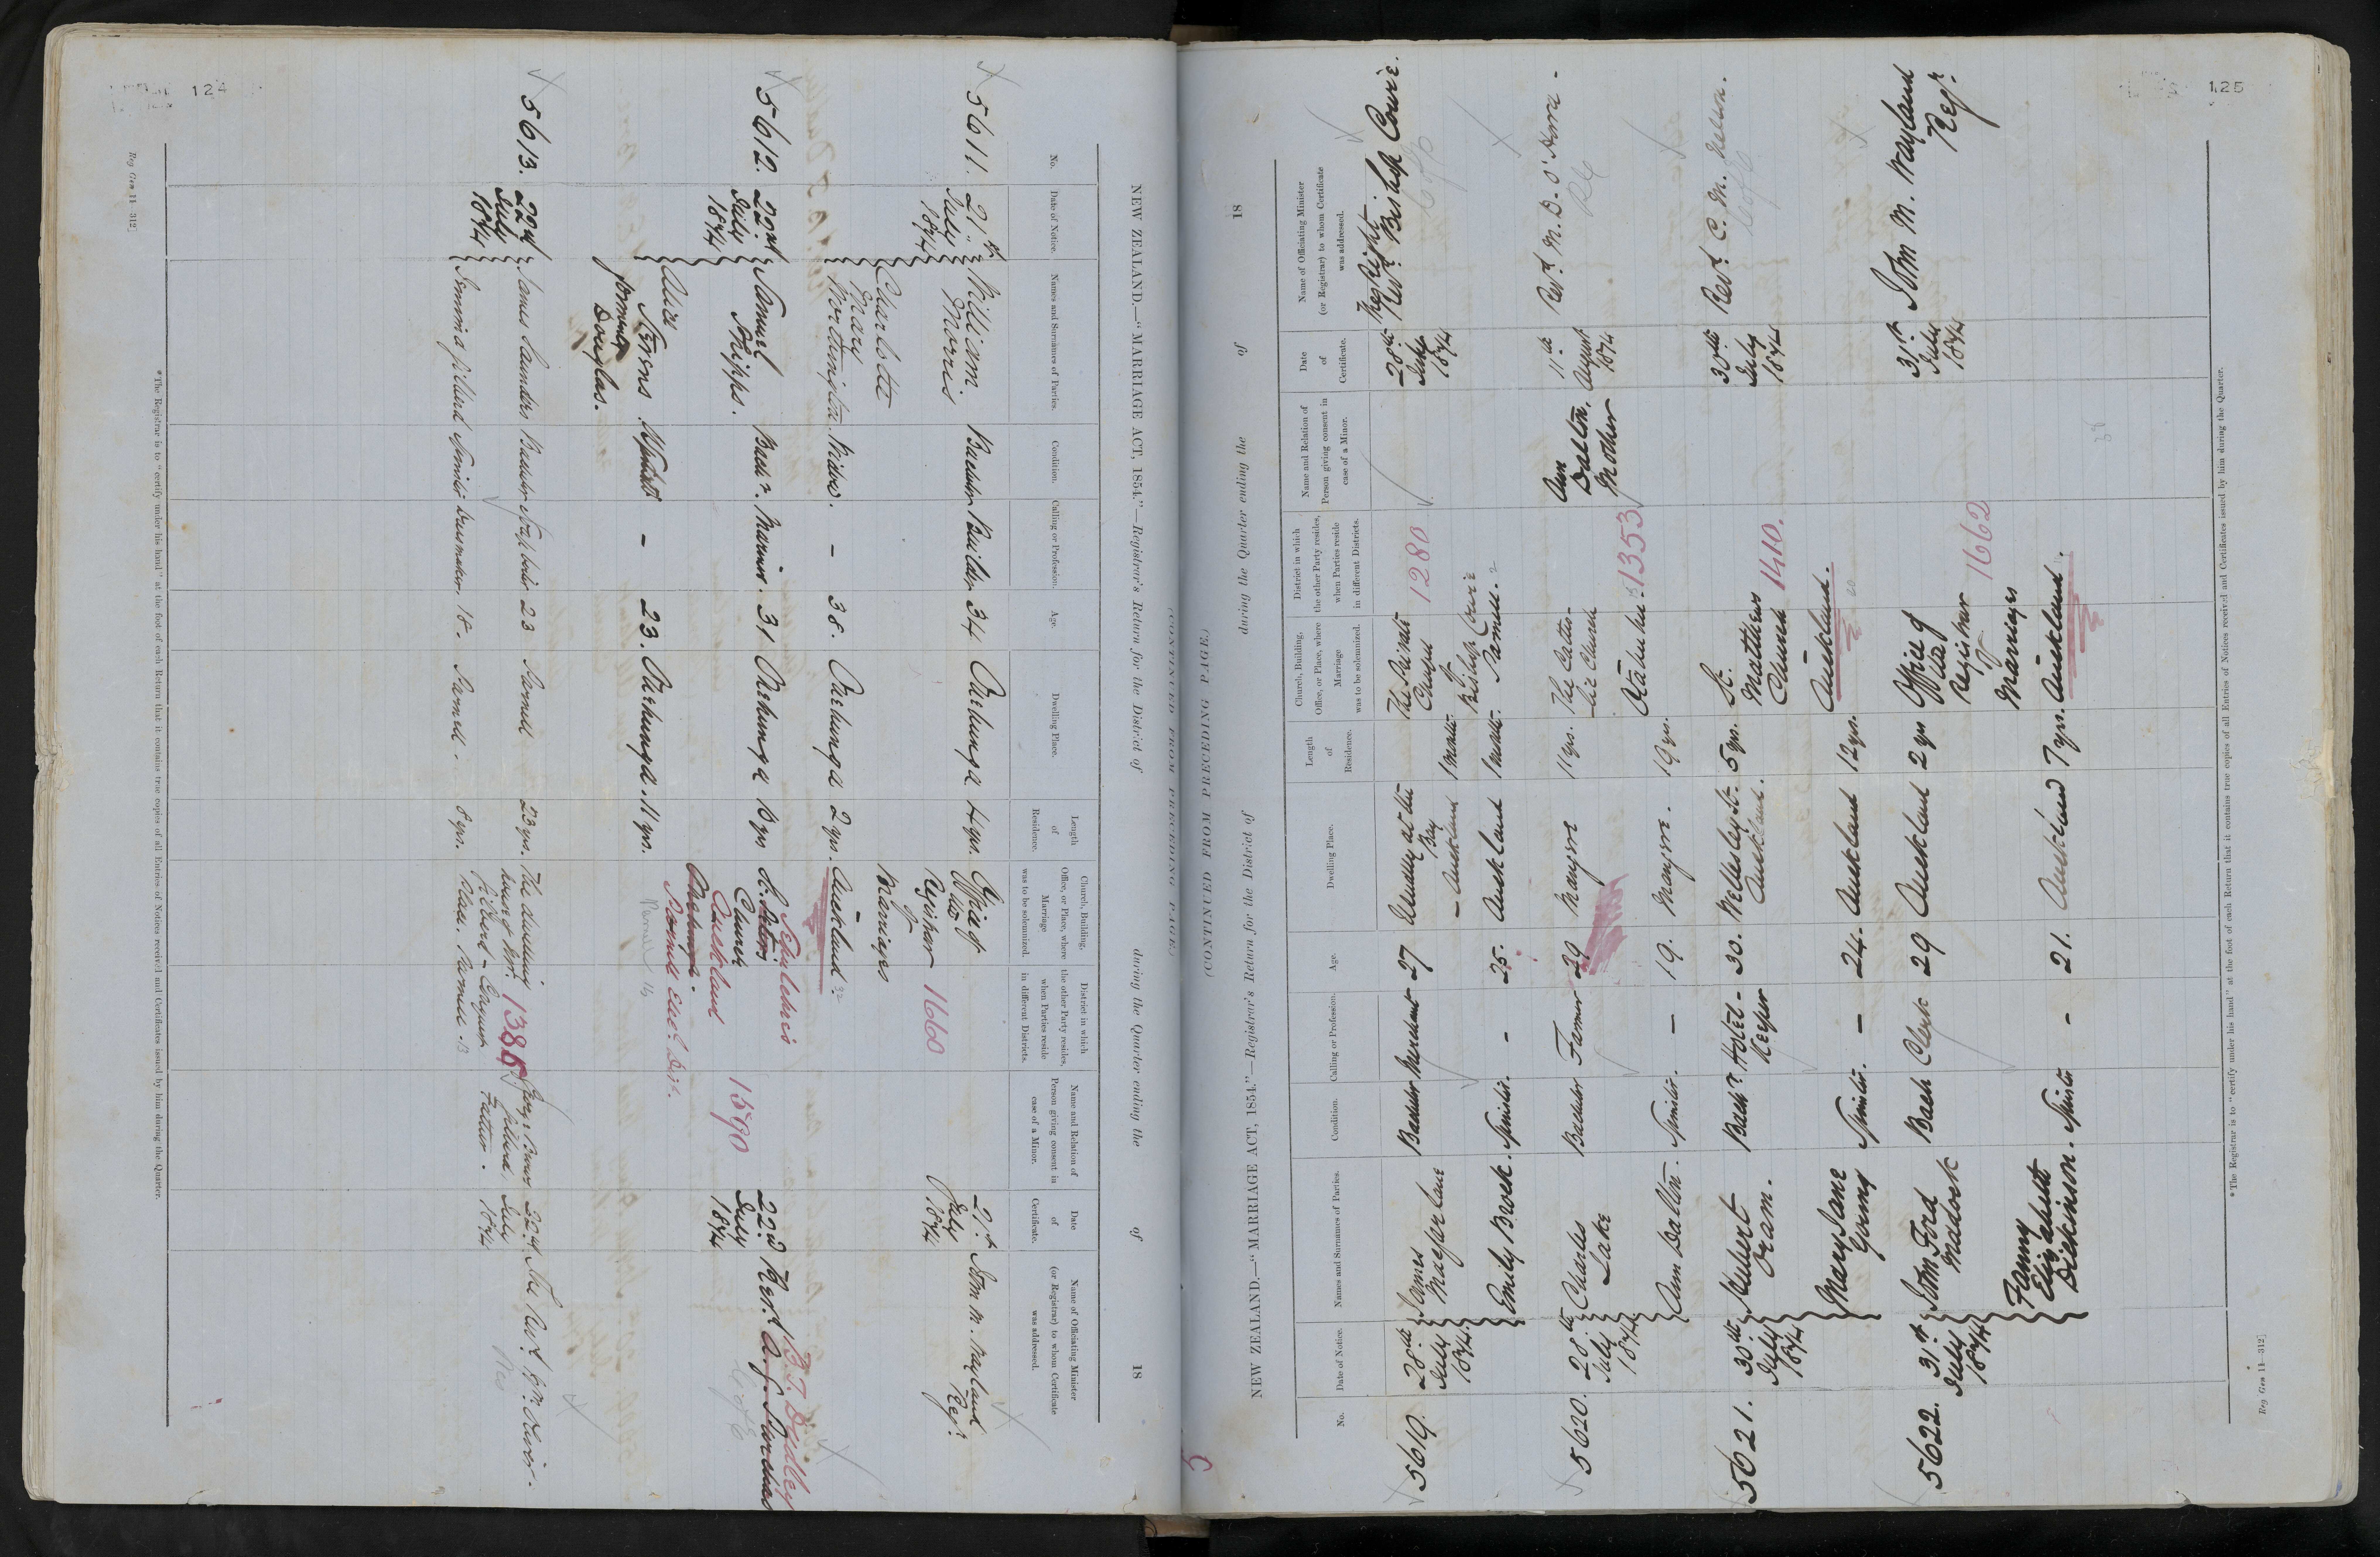 124
NEW ZEALAND.—"MARRIAGE ACT, 1854."—Registrar's Return for the District of during the Quarter ending the of 18
(CONTINUED FROM PRECEDING PAGE.)
No.
Date of Notice.
Names and Surnames of Parties.
Condition.
Calling or Profession.
Age.
Dwelling Place.
Length
of
Residence.
Church, Building,
Office, or Place, where
Marriage
was to be solemnized.
District in which
the other Party resides,
when Parties reside
in different Districts.
Name and Relation of
Person giving consent in
case of a Minor.
Date
of
Certificate.
Name of Officiating Minister
(or Registrar) to whom Certificate
was addressed.
5611.
21st
July
1874
William
Morris
Bachelor
Builder
34
Onehunga
4 yrs.
Office of
the
Registrar
of
Marriages
1660
21st
July
1874
John M. Wayland
Regr.
Charlotte
Mary
Worthington
Widow.
–
38.
Onehunga
2 yrs.
Auckland.
5612.
22nd
July
1874
Samuel
Phipps.
Bachr.
Mariner.
31
Onehunga
St. Peters
Church
Onehunga.
St Sepulchres
Auckland
1590
22nd
July
1874
Revd. A. G. Purchas
B. T. Dudley
Alice
formerly
Douglas.
–
23.
Onehunga.
11 yrs.
Parnell
5613.
22nd
July
1874
James Saunders
Bachelor
23
Parnell
23 yrs.
The dwelling
house of Mr.
Gillard -
Place. Parnell.
1386
Gillard,
Father.
22nd
July
1874
The Revd.
Jemima Gillard
Spinster
Dressmaker.
18.
Parnell.
8 yrs.
*The Registrar is to "certify under his hand" at the foot of each Return that it contains true copies of all Entries of Notices received and Certificates issued by him during the Quarter.
Reg Gen 11—312]
125
(CONTINUED FROM PRECEDING PAGE.)
NEW ZEALAND.—"MARRIAGE ACT, 1854."—Registrar's Return for the District of during the Quarter ending the of 18
No.
Date of Notice.
Names and Surnames of Parties.
Condition.
Calling or Profession.
Age.
Dwelling Place.
Length
of
Residence.
Church, Building,
Office, or Place, where
Marriage
was to be solemnized.
District in which
the other Party resides,
when Parties reside
in different Districts.
Name and Relation of
Person giving consent in
case of a Minor.
Date
of
Certificate.
Name of Officiating Minister
(or Registrar) to whom Certificate
was addressed.
5619.
28th
July
1874.
James
Macfarlane
Bachelor
Merchant
27
Usually at the
Bay
– Auckland
1 month
The Private
Chapel
of
Bishop Cowie
1280
28th
July
1874
The Right
Revd. Bishop Cowie.
Emily Brock.
Spinster.
–
25.
Auckland
1 month.
Parnell.
5620.
28th
July
1874
Charles
Lake
Bachelor
Farmer
29
Mangere
11 yrs.
The Catho-
lic Church
1353
Ann
Dalton,
Mother
11th
August
1874
Revd. M. D. O'Hara -
Ann Dalton.
Spinster.
–
19.
Mangere.
19 yrs.
Otahuhu.
5621.
30th
July
1874
Hubert
Oram.
Bachr
Hotel-
Keeper
30.
Wellesley St.
Auckland.
5 yrs.
St.
Matthews
Church
1410.
30th
July
1874
Revd. C. M. Nelson.
Mary Jane
Gering
Spinster.
–
24.
Auckland
12 yrs.
Auckland.
5622.
31st
July
1874
John Ford
Madock
Bach
Clerk
29
Auckland
2 yrs
Office of
the
Registrar
of
Marriages
1662
31st
July
1874
John M. Wayland
Regr.
Fanny
Elizabeth
Dickinson.
Spinster
-
21.
Auckland
7 yrs.
Auckland.
*The Registrar is to "certify under his hand" at the foot of each Return that it contains true copies of all Entries of Notices received and Certificates issued by him during the Quarter.
Reg Gen 11—312]